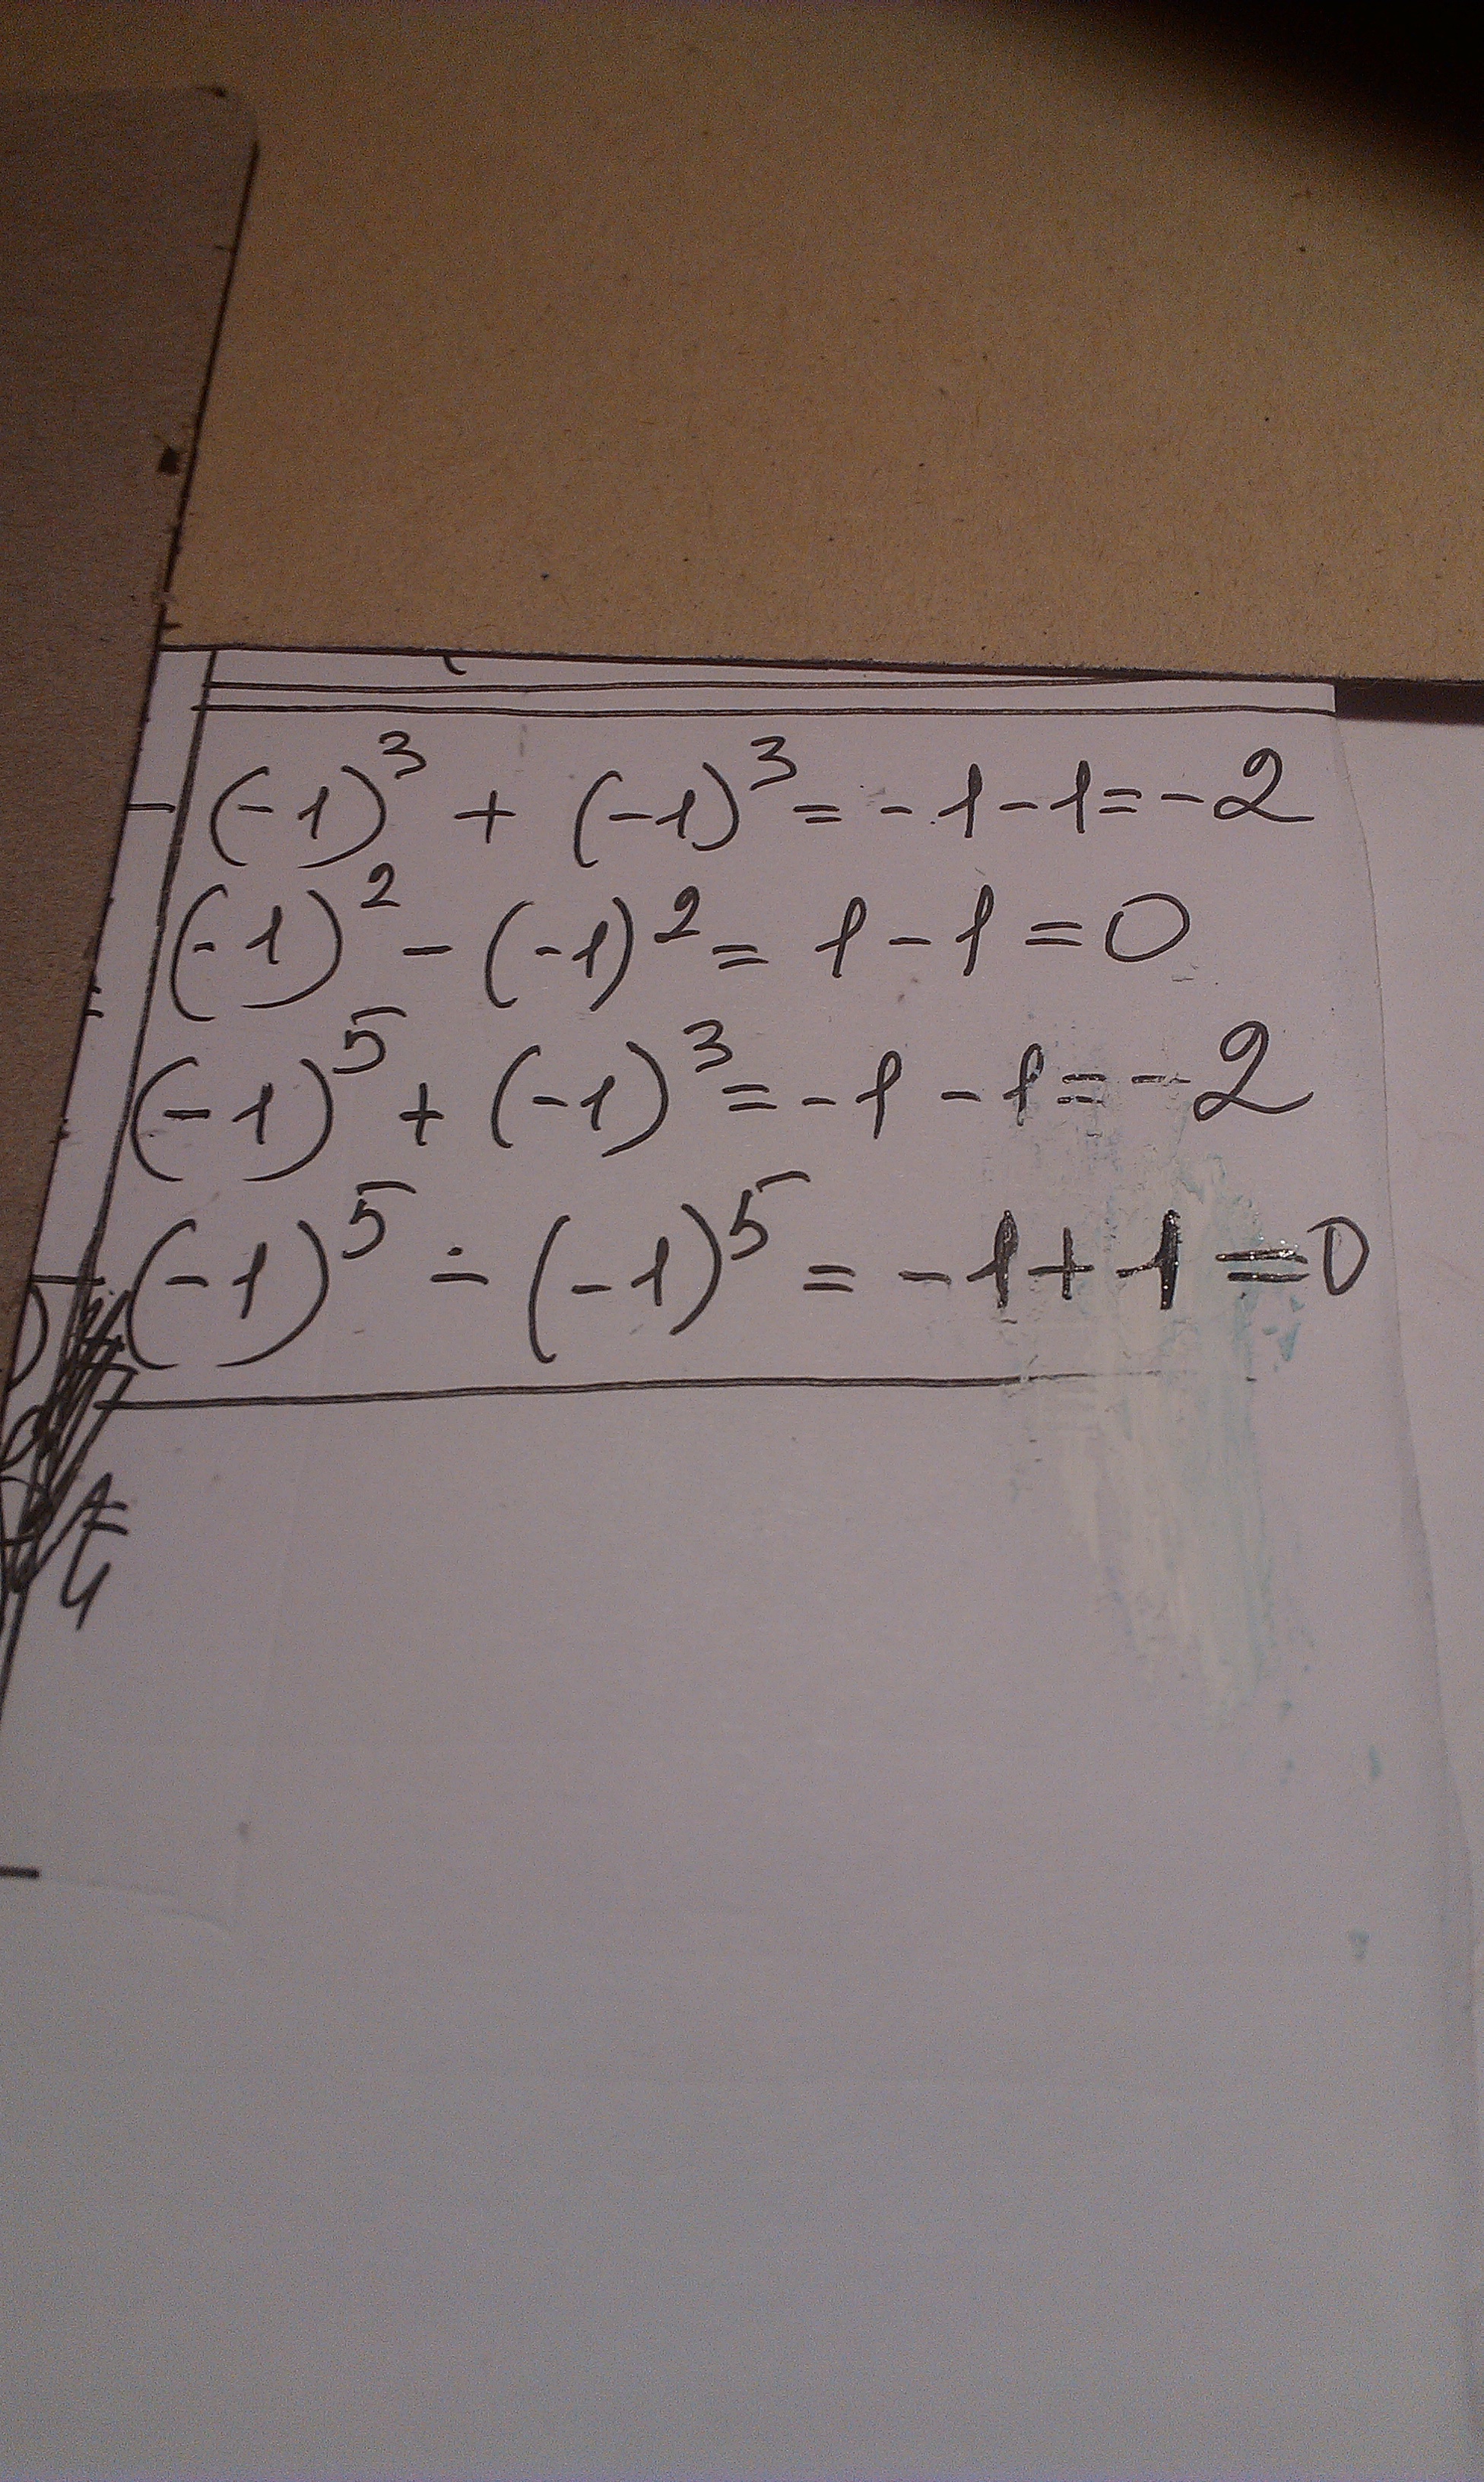 (-1)³ + (-1)³ = -1-1=-2
(-1)² - (-1)² = 1-1=0
(-1)⁵ + (-1)³ = -1-1=-2
(-1)⁵ - (-1)⁵ = -1+1=0